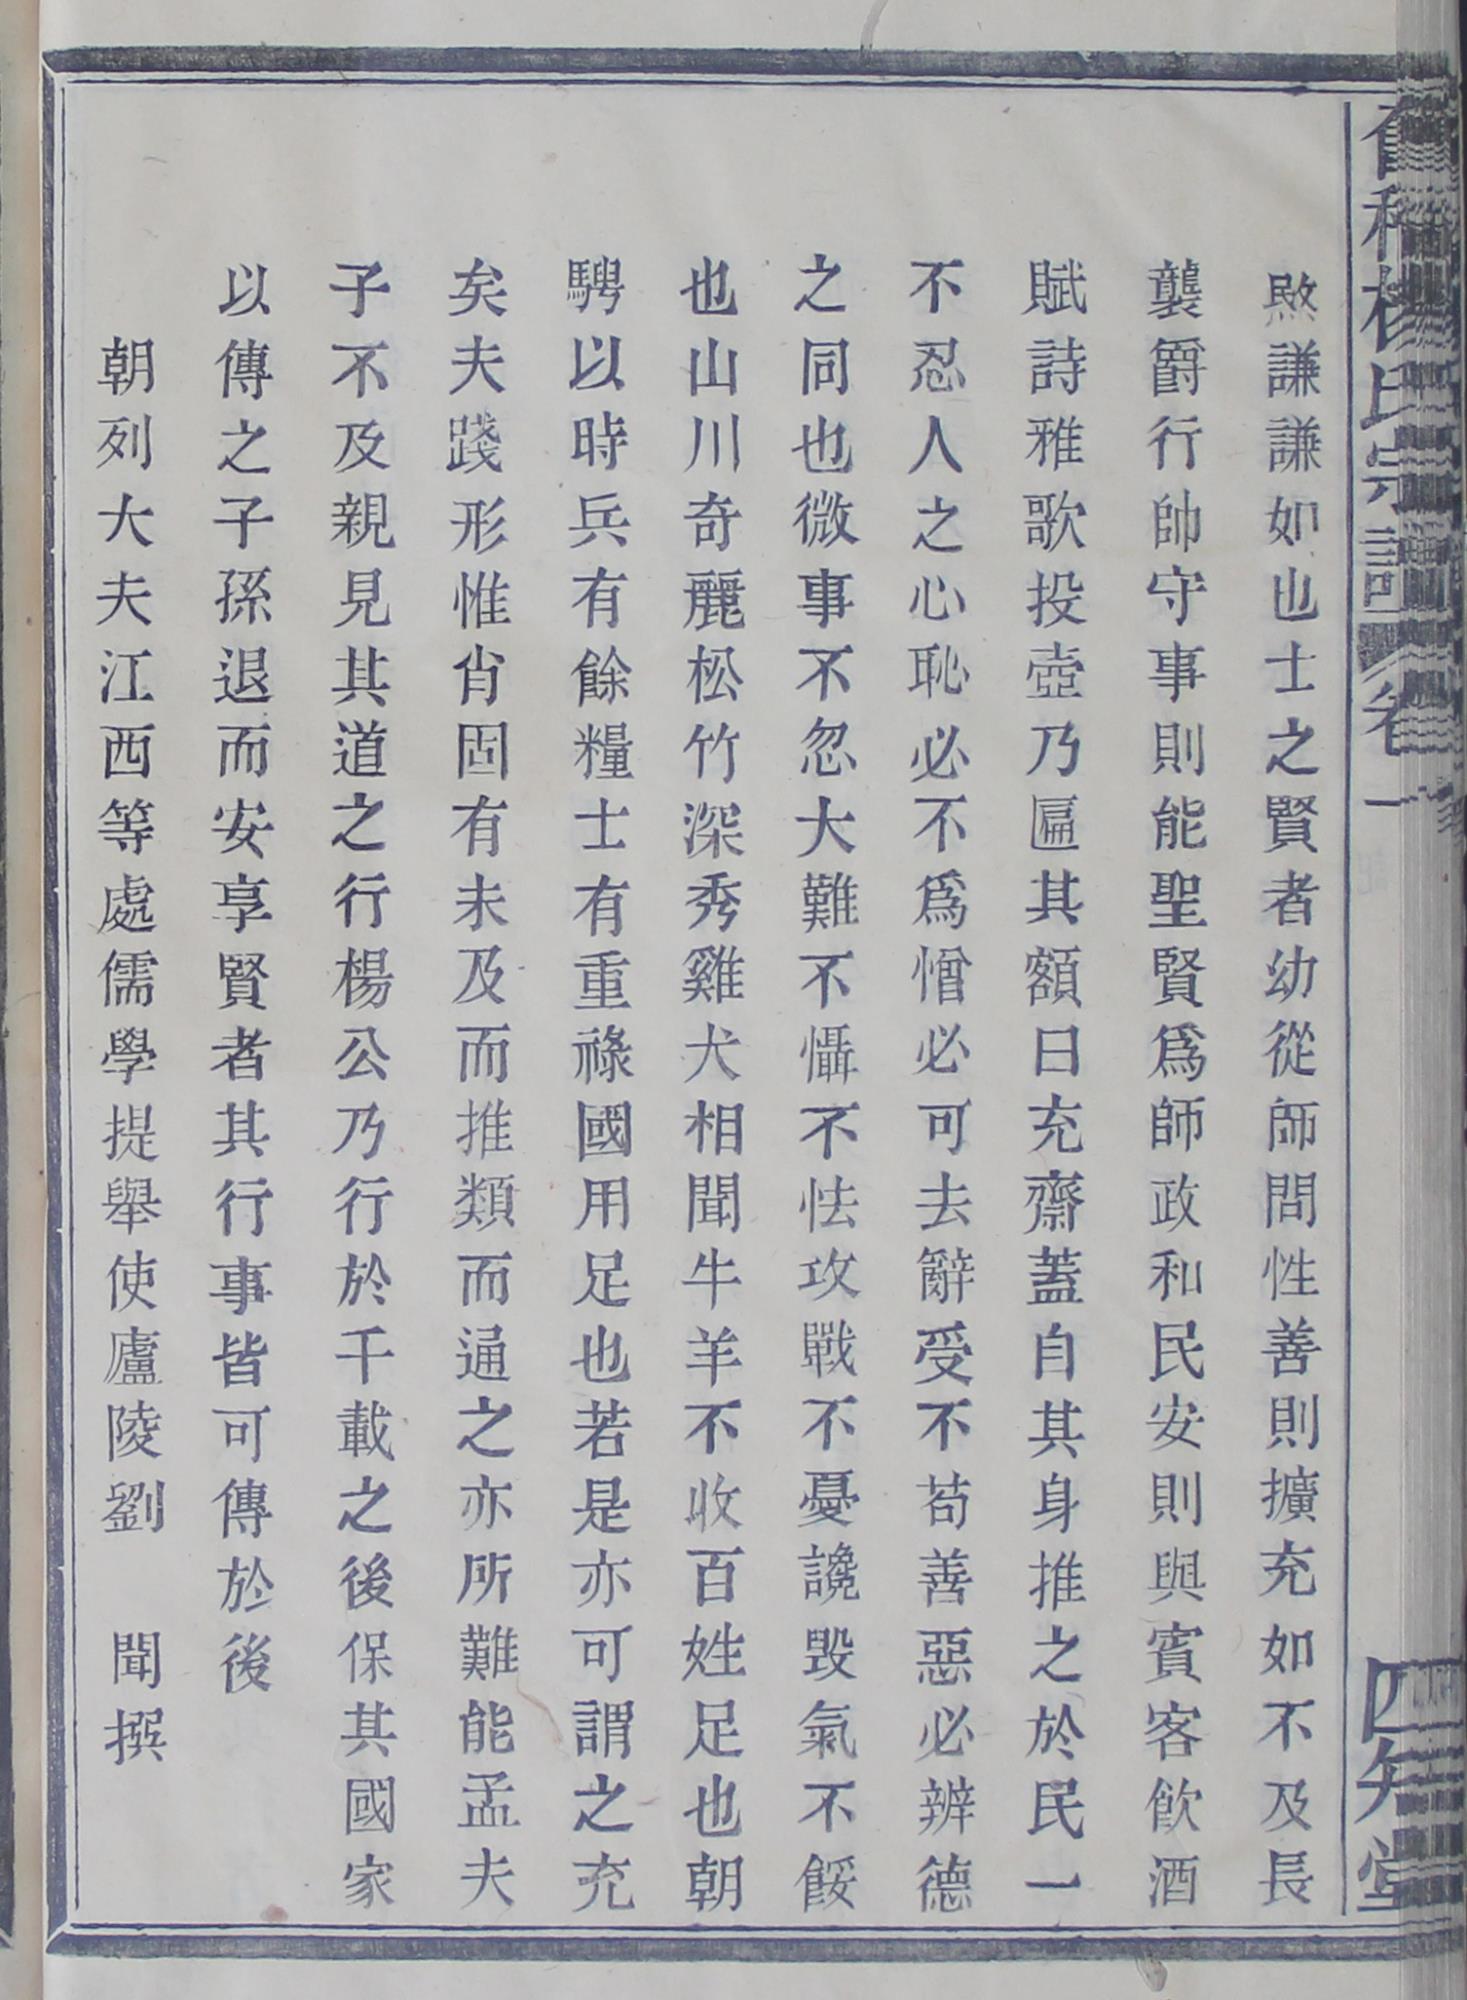 謙謙如也士之賢者幼從師問性善則擴充如不及長
襲爵行帥守事則能聖賢爲師政和民安則與賓客飮酒
賦詩雅歌投壺乃匾其額曰充齋蓋自其身推之於民一
不忍人之心恥必不爲憎必可去辭受不苟善惡必辨德
之同也微事不忽大難不懾不怯攻戰不憂讒毀氣不餒
也山川奇麗松竹深秀雞犬相聞牛羊不收百姓足也朝
騁以時兵有餘糧士有重祿國用足也若是亦可謂之充
矣夫踐形惟肖固有未及而推類而通之亦所難能孟夫
子不及親見其道之行楊公乃行於千載之後保其國家
以傳之子孫退而安享賢者其行事皆可傳於後
朝列大夫江西等處儒學提舉使廬陵劉 聞撰
氏宗譜 卷一
四知堂